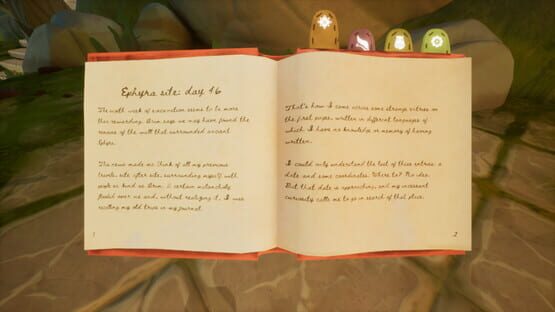 Ephyra site: day 46
The sixth week of excavation seems to be more
than rewarding. Orin says we may have found the
remains of the wall that surrounded ancient
Ephyra.
The news made me think of all my previous
travels, site after site, surrounding myself with
people as kind as Orin. A certain melancholy
flooded over me and, without realizing it, I was
reading my old trips in my journal.
1
That's how I came across some strange entries on
the first pages, written in different languages of
which I have no knowledge or memory of having
written.
I could only understand the last of these entries: a
date and some coordinates. Where to? No idea.
But that date is approaching, and my incessant
curiosity calls me to go in search of that place.
2